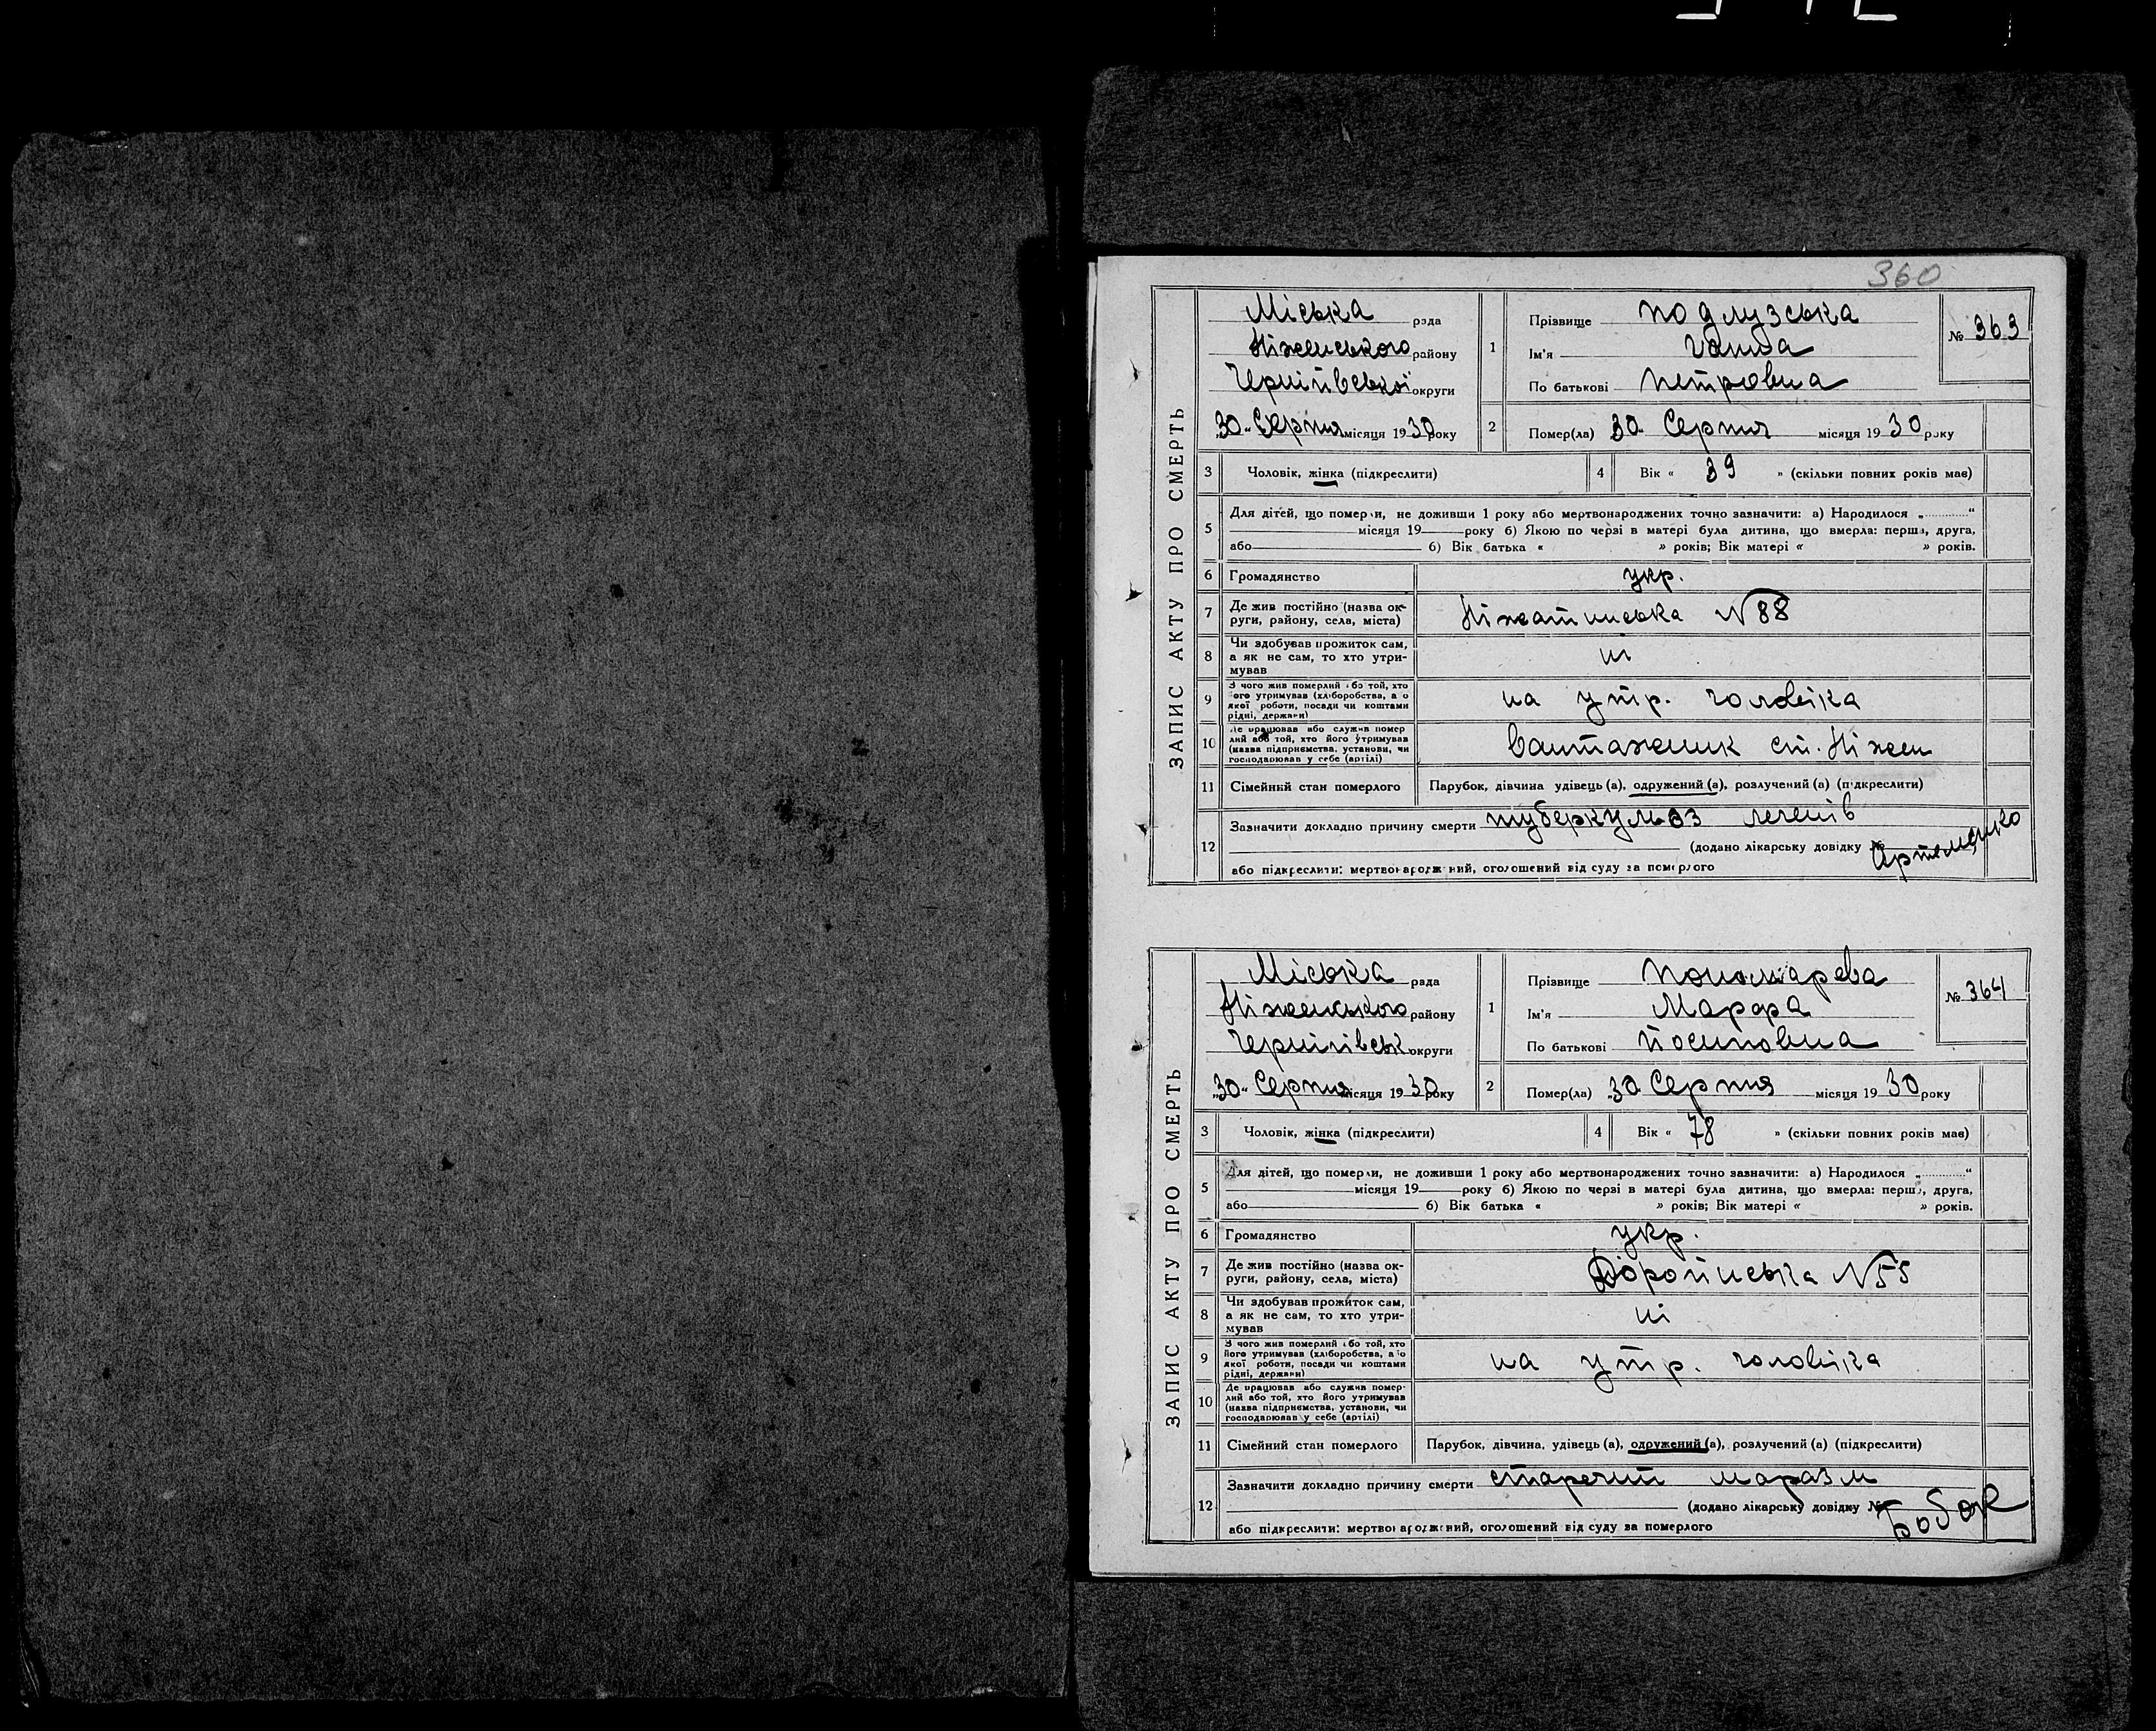 360
ЗАПИС АКТУ ПРО СМЕРТЬ
Міська рада
Ніженського району
Чернігівської округи
„30“ Серпня місяця 1930 року
1 Прізвище Подлузська
Ім'я Ганна
По батькові Петровна
№ 363
2 Помер(ла) 30 Серпня місяця 1930 року
3 Чоловік, жінка (підкреслити)
4 Вік « 39 » (скільки повних років має)
5 Для дітей, що померли, не доживши 1 року або мертвонароджених точно зазначити: а) Народилося „ “
місяця 19 року б) Якою по черзі в матері була дитина, що вмерла: перша, друга,
або б) Вік батька « » років; Вік матері « » років.
6 Громадянство укр.
7 Де жив постійно (назва ок-
руги, району, села, міста) Ніжатинська N 88
8 Чи здобував прожиток сам,
а як не сам, то хто утри-
мував ні
9 З чого жив померлий або той, хто
його утримував (хліборобства, або
якої роботи, посади чи коштами
рідні, держави) на утр. чоловіка
10 Де працював або служив помер
лий або той, хто його утримував
(назва підприємства, установи, чи
господарював у себе (артілі) Вантажник ст. Ніжен
11 Сімейний стан померлого Парубок, дівчина удівець (а), одружений (а), розлучений (а) (підкреслити)
12 Зазначити докладно причину смерти туберкульоз легенів
(додано лікарську довідку № Артеменко
або підкреслити: мертвонароджений, оголошений від суду за померлого
ЗАПИС АКТУ ПРО СМЕРТЬ
Міська рада
Ніженського району
Чернігівськ округи
„30“ Серпня місяця 1930 року
1 Прізвище Пономарева
Ім'я Марфа
По батькові Йосиповна
№ 364
2 Помер(ла) 30 Серпня місяця 1930 року
3 Чоловік, жінка (підкреслити)
4 Вік « 78 » (скільки повних років має)
5 Для дітей, що померли, не доживши 1 року або мертвонароджених точно зазначити: а) Народилося „ “
місяця 19 року б) Якою по черзі в матері була дитина, що вмерла: перша, друга,
або б) Вік батька « » років; Вік матері « » років.
6 Громадянство укр.
7 Де жив постійно (назва ок-
руги, району, села, міста) N 55
8 Чи здобував прожиток сам,
а як не сам, то хто утри-
мував ні
9 З чого жив померлий або той, хто
його утримував (хліборобства, або
якої роботи, посади чи коштами
рідні, держави) на утр. чоловіка
10 Де працював або служив помер-
лий або той, хто його утримував
(назва підприємства, установи, чи
господарював у себе (артілі)
11 Сімейний стан померлого Парубок, дівчина, удівець (а), одружений (а), розлучений (а) (підкреслити)
12 Зазначити докладно причину смерти старечий маразм
(додано лікарську довідку № Бобок
або підкреслити: мертвонароджений, оголошений від суду за померлого